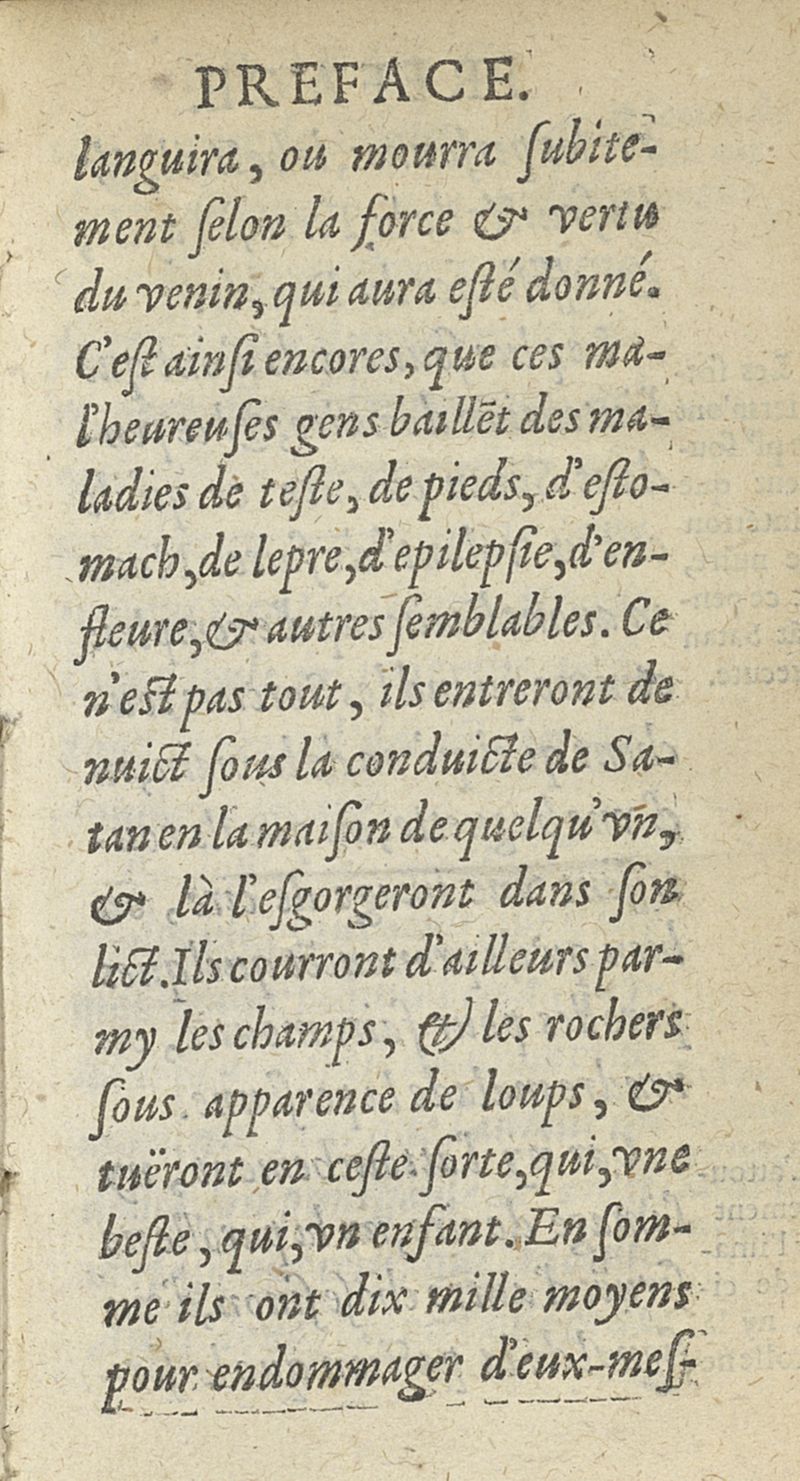 PREFACE.
languira, ou mourra ſubite-
ment ſelon la force & vertu
du venin, qui aura eſté donné.
C'eſt ainſi encores, que ces ma-
l'heureuſes gens baillēt des ma-
ladies de teſte, de pieds, d'eſto-
mach, de lepre, d'epilepſie, d'en-
fleure, & autres ſemblables. Ce
n'eſt pas tout, ils entreront de
nuict ſous la conduicte de Sa-
tan en la maiſon de quelqu'vn,
& là l'eſgorgeront dans ſon
lict. Ils courront d'ailleurs par-
my les champs, & les rochers
ſous apparence de loups, &
tuëront en ceſte ſorte, qui, vne
beſte, qui, vn enfant. En ſom-
me ils ont dix mille moyens
pour endommager d'eux-meſ-